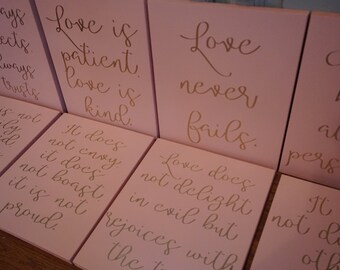 ays
ects.
lways
trusts
Love is
patient
love is
kind.
Love
never
fails.
al
pers
is not
ily
d
It does
not envy
it does
not boast
it is not
proud.
Love does
not delight
in evil but
rejoices with
the t
It
not d
oth